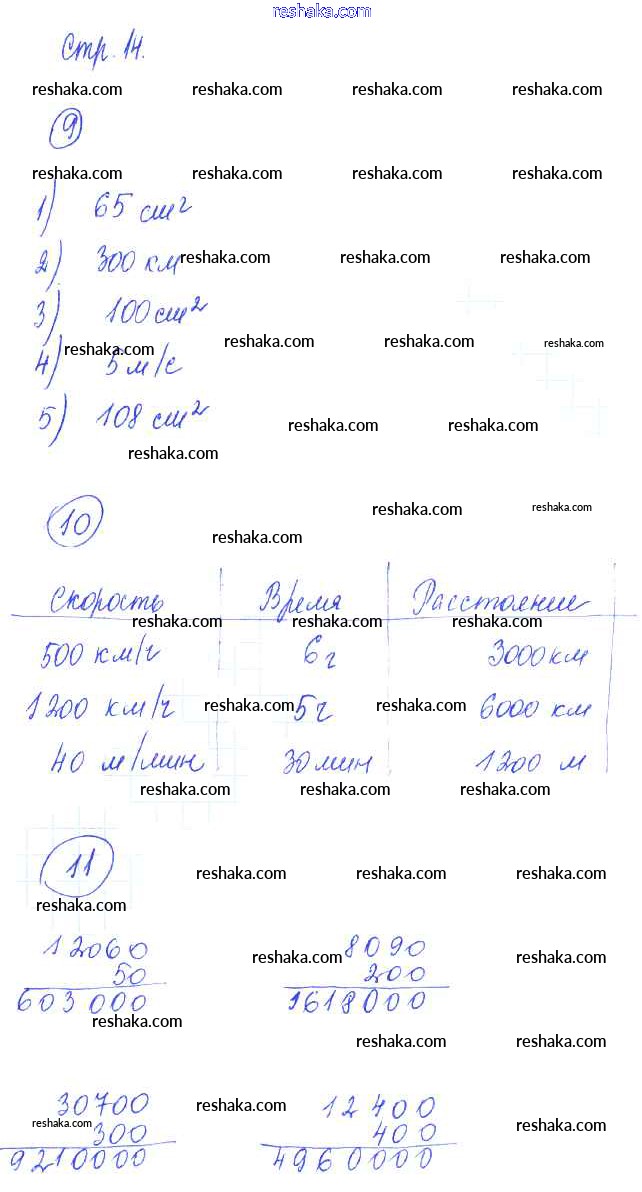 reshaka.com
Стр. 14.
reshaka.com reshaka.com reshaka.com reshaka.com
9
reshaka.com reshaka.com reshaka.com reshaka.com
1) 65 см²
2) 300 км reshaka.com reshaka.com reshaka.com
3) 100 см²
reshaka.com reshaka.com reshaka.com reshaka.com
4) 5 м/с
5) 108 см²
reshaka.com reshaka.com
reshaka.com
10
reshaka.com reshaka.com
reshaka.com
Скорость Время Расстояние
reshaka.com reshaka.com reshaka.com
500 км/ч 6 ч 3000 км
1200 км/ч 5 ч 6000 км
reshaka.com reshaka.com
40 м/мин 30 мин 1200 м
reshaka.com reshaka.com reshaka.com
11
reshaka.com reshaka.com reshaka.com
reshaka.com
12060 8090
50 200
reshaka.com reshaka.com
603 000 1618000
reshaka.com
reshaka.com reshaka.com
30700 12 400
reshaka.com reshaka.com
300 400
reshaka.com reshaka.com
9210000 4960000